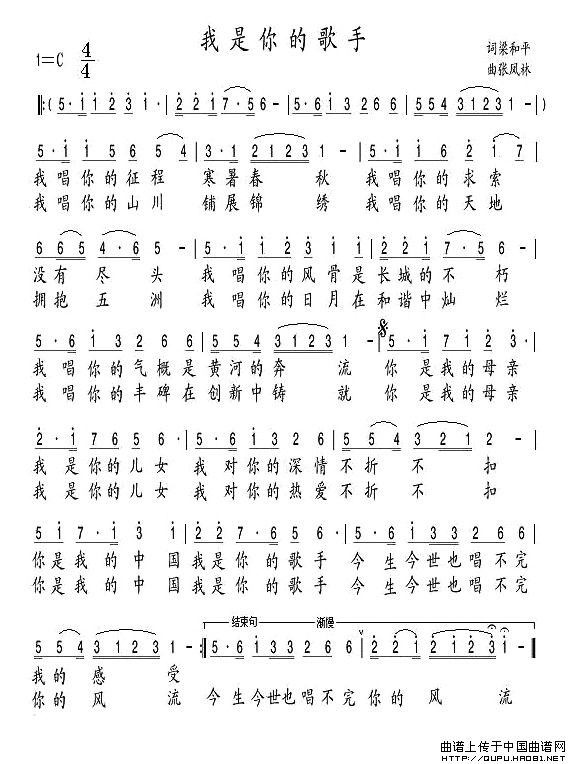 我是你的歌手
1=C 4/4
词梁和平
曲张风林
‖:(5·i i 2 3 i· i | 2 2 i 7·5 6 - | 5·i i 3 2 6 6 | 5 5 4 3 1 2 3 1 - )
5·i i 5 6 5 4 | 3·1 2 1 2 3 1 - | 5·i i 6 2 i 7
我唱你的征程 寒暑春 秋 我唱你的求索
我唱你的山川 铺展锦 绣 我唱你的天地
6 6 5 4·6 5 - | 5·i i 2 3 i i | 2 2 i 7·5 6 -
没有尽头 我唱你的风骨是长城的不 朽
拥抱五洲 我唱你的日月在和谐中灿 烂
5·6 i 3 2 6 6 | 5 5 4 3 1 2 3 1 - | 5·i i 2 3 2
我唱你的气概是黄河的奔 流 你是我的母亲
我唱你的丰碑在创新中铸 就 你是我的母亲
2·i 7 6 5 6· | 5·6 i 3 2 6 | 5 5 4 3 2 1 2 -
我是你的儿女 我对你的深情不折 不 扣
我是你的儿女 我对你的热爱不折 不 扣
5 i 7·i 3 i | 2 2 i 7·5 6 | 5·6 i 3 2 6 6
你是我的中国我是你的歌手 今生今世也唱不完
你是我的中国我是你的歌手 今生今世也唱不完
结束句 渐慢
5 5 4 3 1 2 3 1 - :‖ 5·6 i 3 2 6 6 | 2 2 i 2 i i -
我的感 受
你的风 流 今生今世也唱不完你的风 流
曲谱上传于中国曲谱网
HTTP://QUPU.HAO81.NET